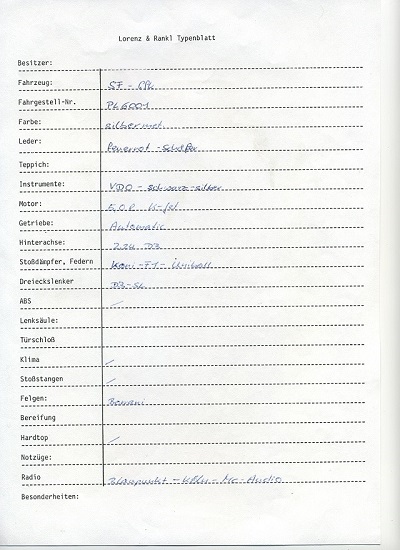 Lorenz & Rankl Typenblatt
Besitzer:
Fahrzeug: SF -
Fahrgestell-Nr. PL6001
Farbe: silbermet
Leder: Feuerrot -
Teppich:
Instrumente: VDO - schwarz-silber
Motor:
Getriebe: Automatic
Hinterachse:
Stoßdämpfer, Federn Koni - F1 -
Dreieckslenker
ABS /
Lenksäule:
Türschloß
Klima /
Stoßstangen /
Felgen: Borrani
Bereifung
Hardtop /
Notzüge:
Radio Blaupunkt - Köln - Mc-Audio
Besonderheiten: